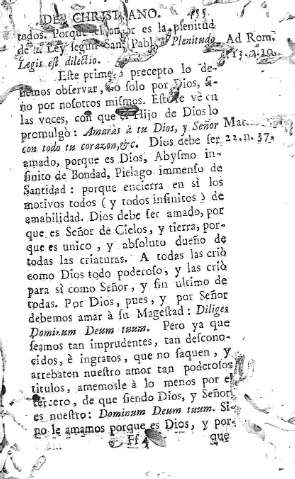 DEL CHRISTIANO. 455
todos. Porque el amor es la plenitud
de la Ley segun San Pablo: Plenitudo Ad Rom.
Legis est dilectio. 13. v. 10.
Este primer precepto lo de-
bemos observar, no solo por Dios, si-
no por nosotros mismos. Esto se vè en
las voces, con que el Hijo de Dios lo
promulgò: Amaràs à tu Dios, y Señor
con todo tu corazon, &c. Dios debe ser 22. n. 37.
amado, porque es Dios, Abysmo in-
finito de Bondad, Pielago immenso de
Santidad: porque encierra en sì los
motivos todos (y todos infinitos) de
amabilidad. Dios debe ser amado, por
que es Señor de Cielos, y tierra, por-
que es unico, y absoluto dueño de
todas las criaturas. A todas las criò
como Dios todo poderoso, y las criò
para sì como Señor, y fin ultimo de
todas. Por Dios, pues, y por Señor
debemos amar à su Magestad: Diliges
Dominum Deum tuum. Pero ya que
seamos tan imprudentes, tan descono-
cidos, è ingratos, que no saquen, y
arrebaten nuestro amor tan poderosos
titulos, amemosle à lo menos por el
tercero, de que siendo Dios, y Señor
es nuestro: Dominum Deum tuum. Si-
no le amamos porque es Dios, y por-
Ff que